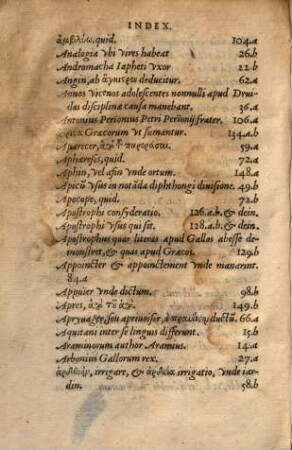 INDEX.
ἀμβλίω, quid. 104.a
Analogia vbi vires habeat 26.b
Andromacha Iapheti Vxor 22.b
Angin, ab deducitur. 62.a
Annos vicenos adolescentes nonnulli apud Drui-
das disciplinæ causa manebant. 36.a
Antonius Perionius Petri Perionij frater. 106.a
Græcorum vt sumantur. 134.a.b
Aparecer, 59.a
Aphæresis, quid. 72.a
Aphin, vel afin vnde ortum. 148.a
Apicū vsus in notāda diphthongi diuisione. 49.b
Apocope, quid. 72.b
Apostrophi consyderatio. 126.a.b. & dein.
Apostrophi vsus qui sit. 128.a.b. & dein.
Apostrophus quas literas apud Gallos abesse de-
monstret, & quas apud Græcos. 129.b
Appoincter & appoinctement vnde manarint.
84.a
Appuier vnde dictum. 98.b
Apres, 149.b
seu apriuoiser, ductū. 66.a
Aquitani inter se linguis differunt. 15.b
Araminorum author Aramius. 14.a
Arbonius Gallorum rex. 21.a
irrigare, & irrigatio, vnde iar-
din. 58.b